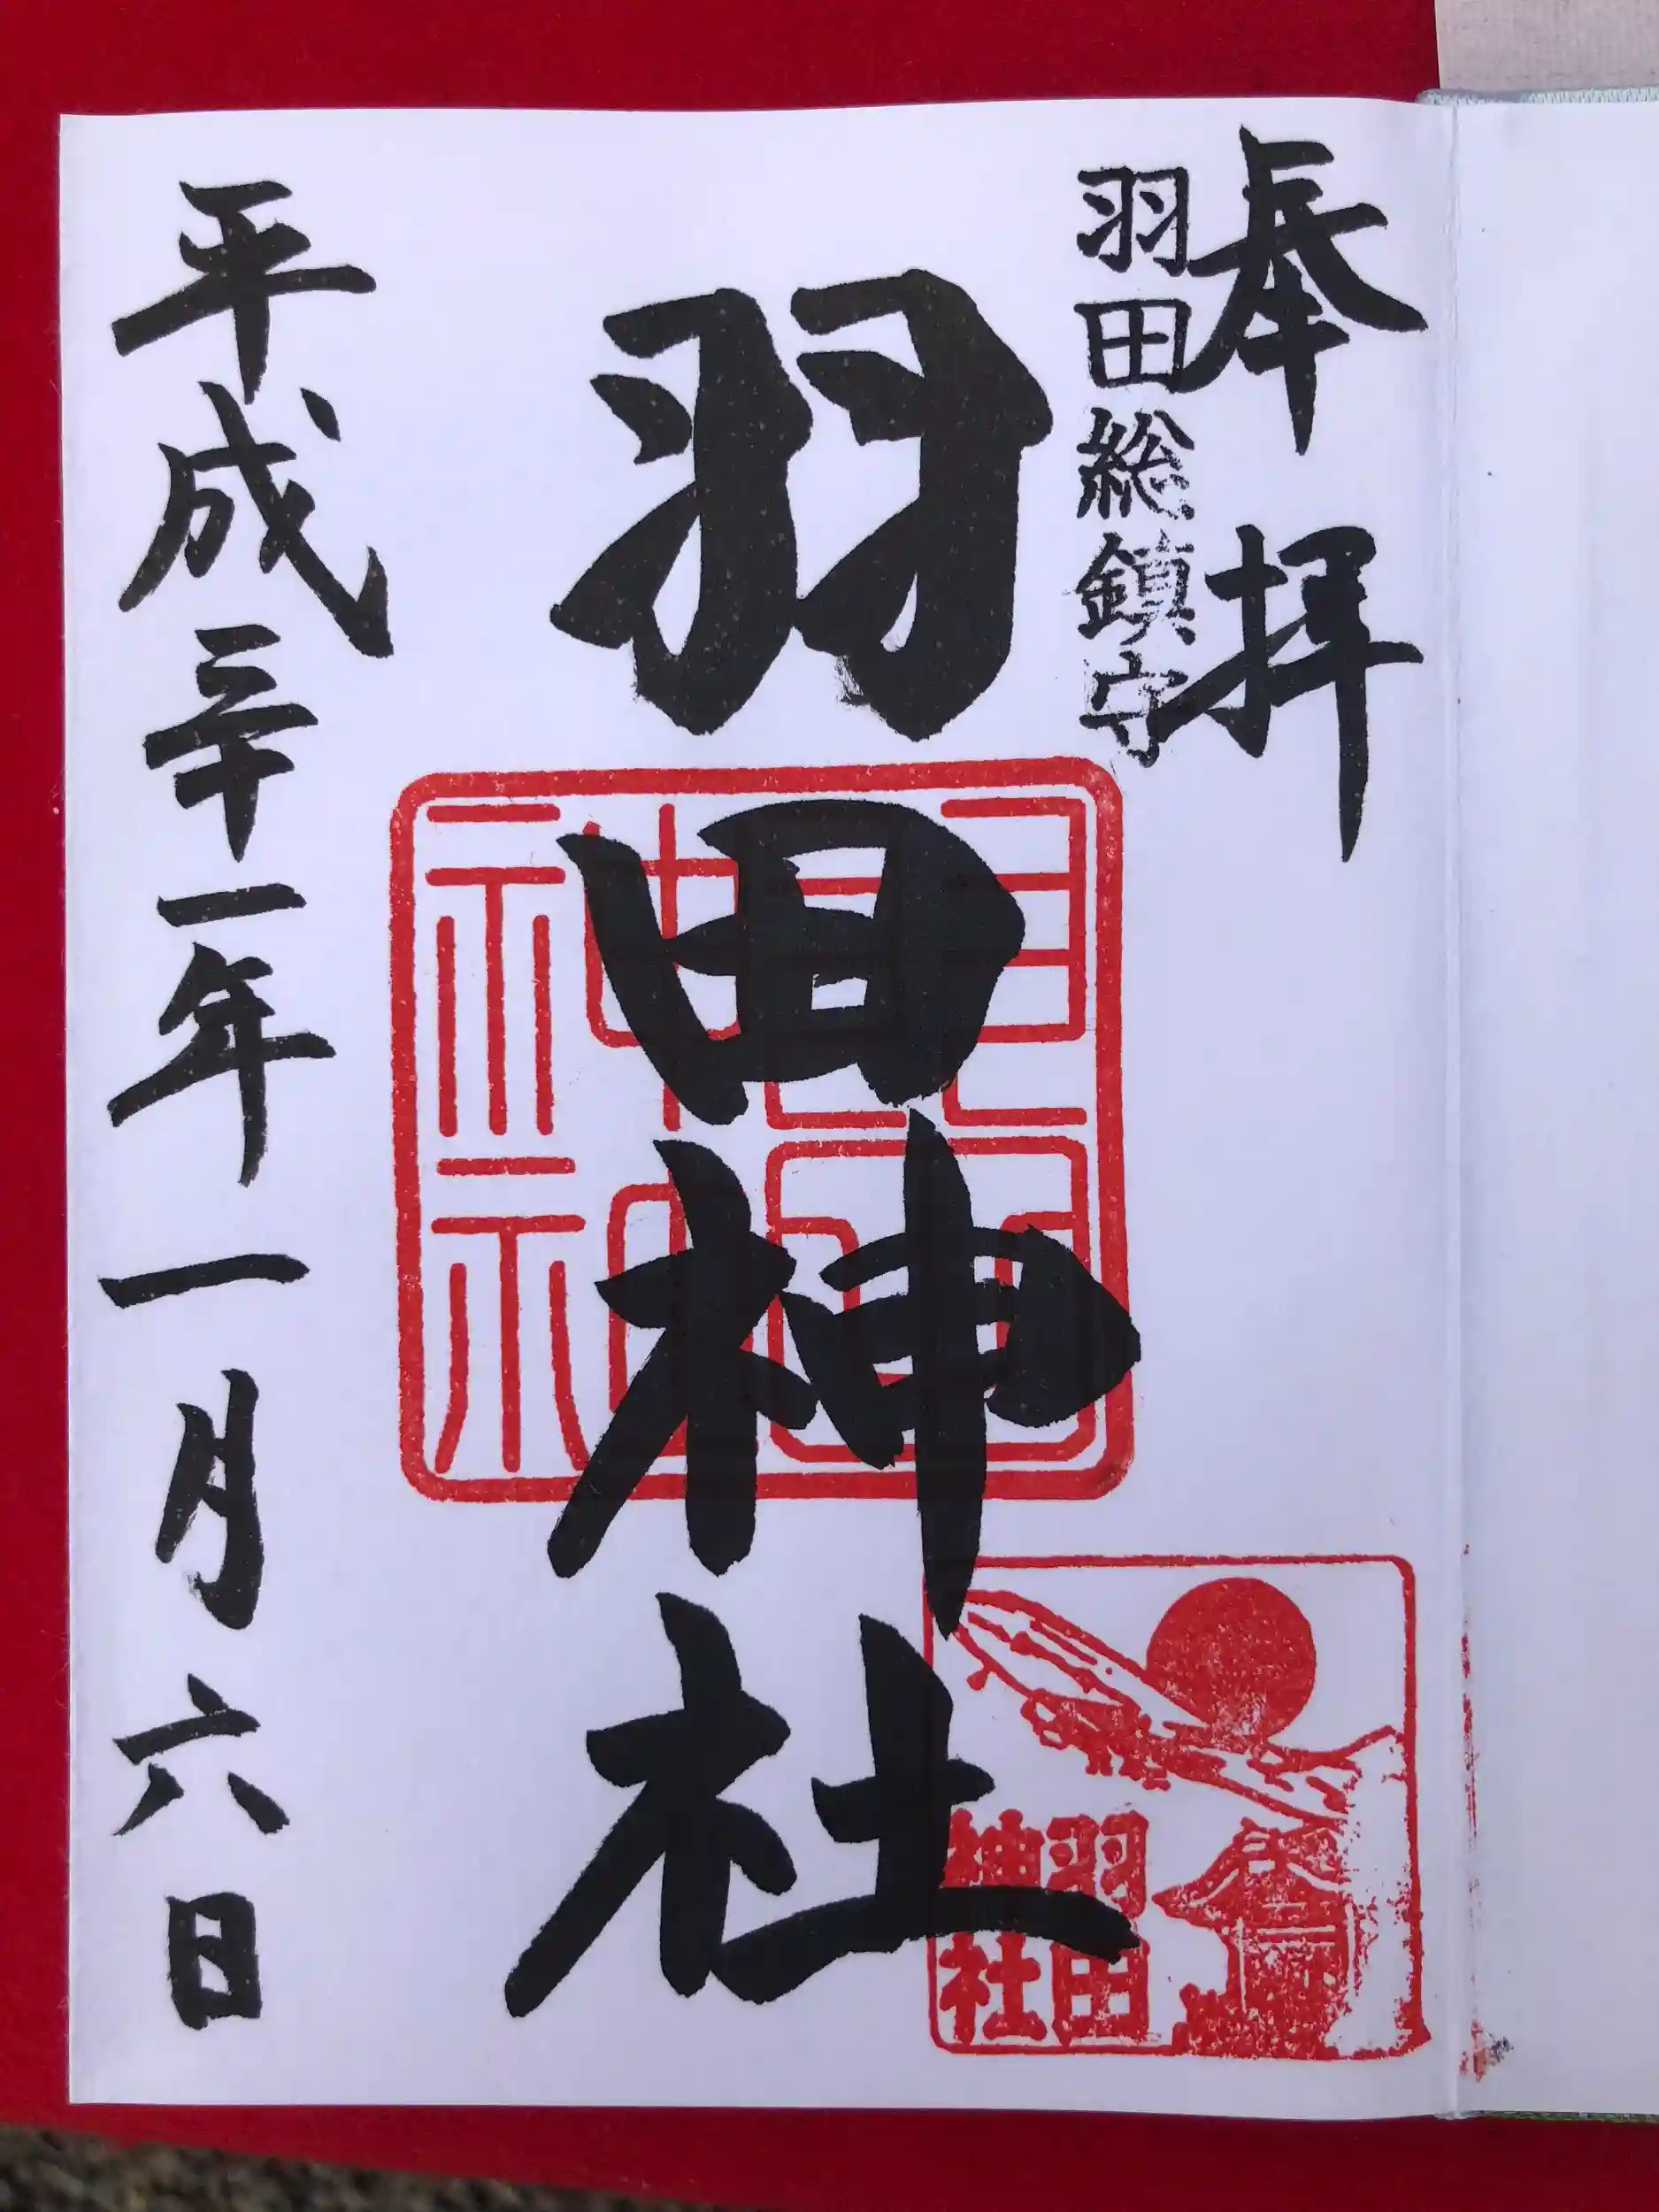 奉拝
羽田総鎮守
羽田神社
羽田神社
羽田神社
平成三十一年一月六日